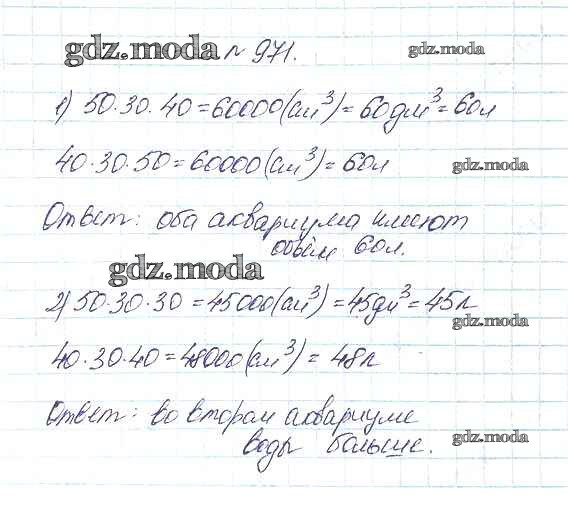 gdz.moda № 971. gdz.moda
1) 50·30·40=60000(см³)=60дм³=60л
40·30·50=60000(см³)=60л gdz.moda
Ответ: оба аквариума имеют
объём 60л.
gdz.moda
2) 50·30·30=45000(см³)=45дм³=45л
gdz.moda
40·30·40=48000(см³)=48л
Ответ: во втором аквариуме
воды больше. gdz.moda